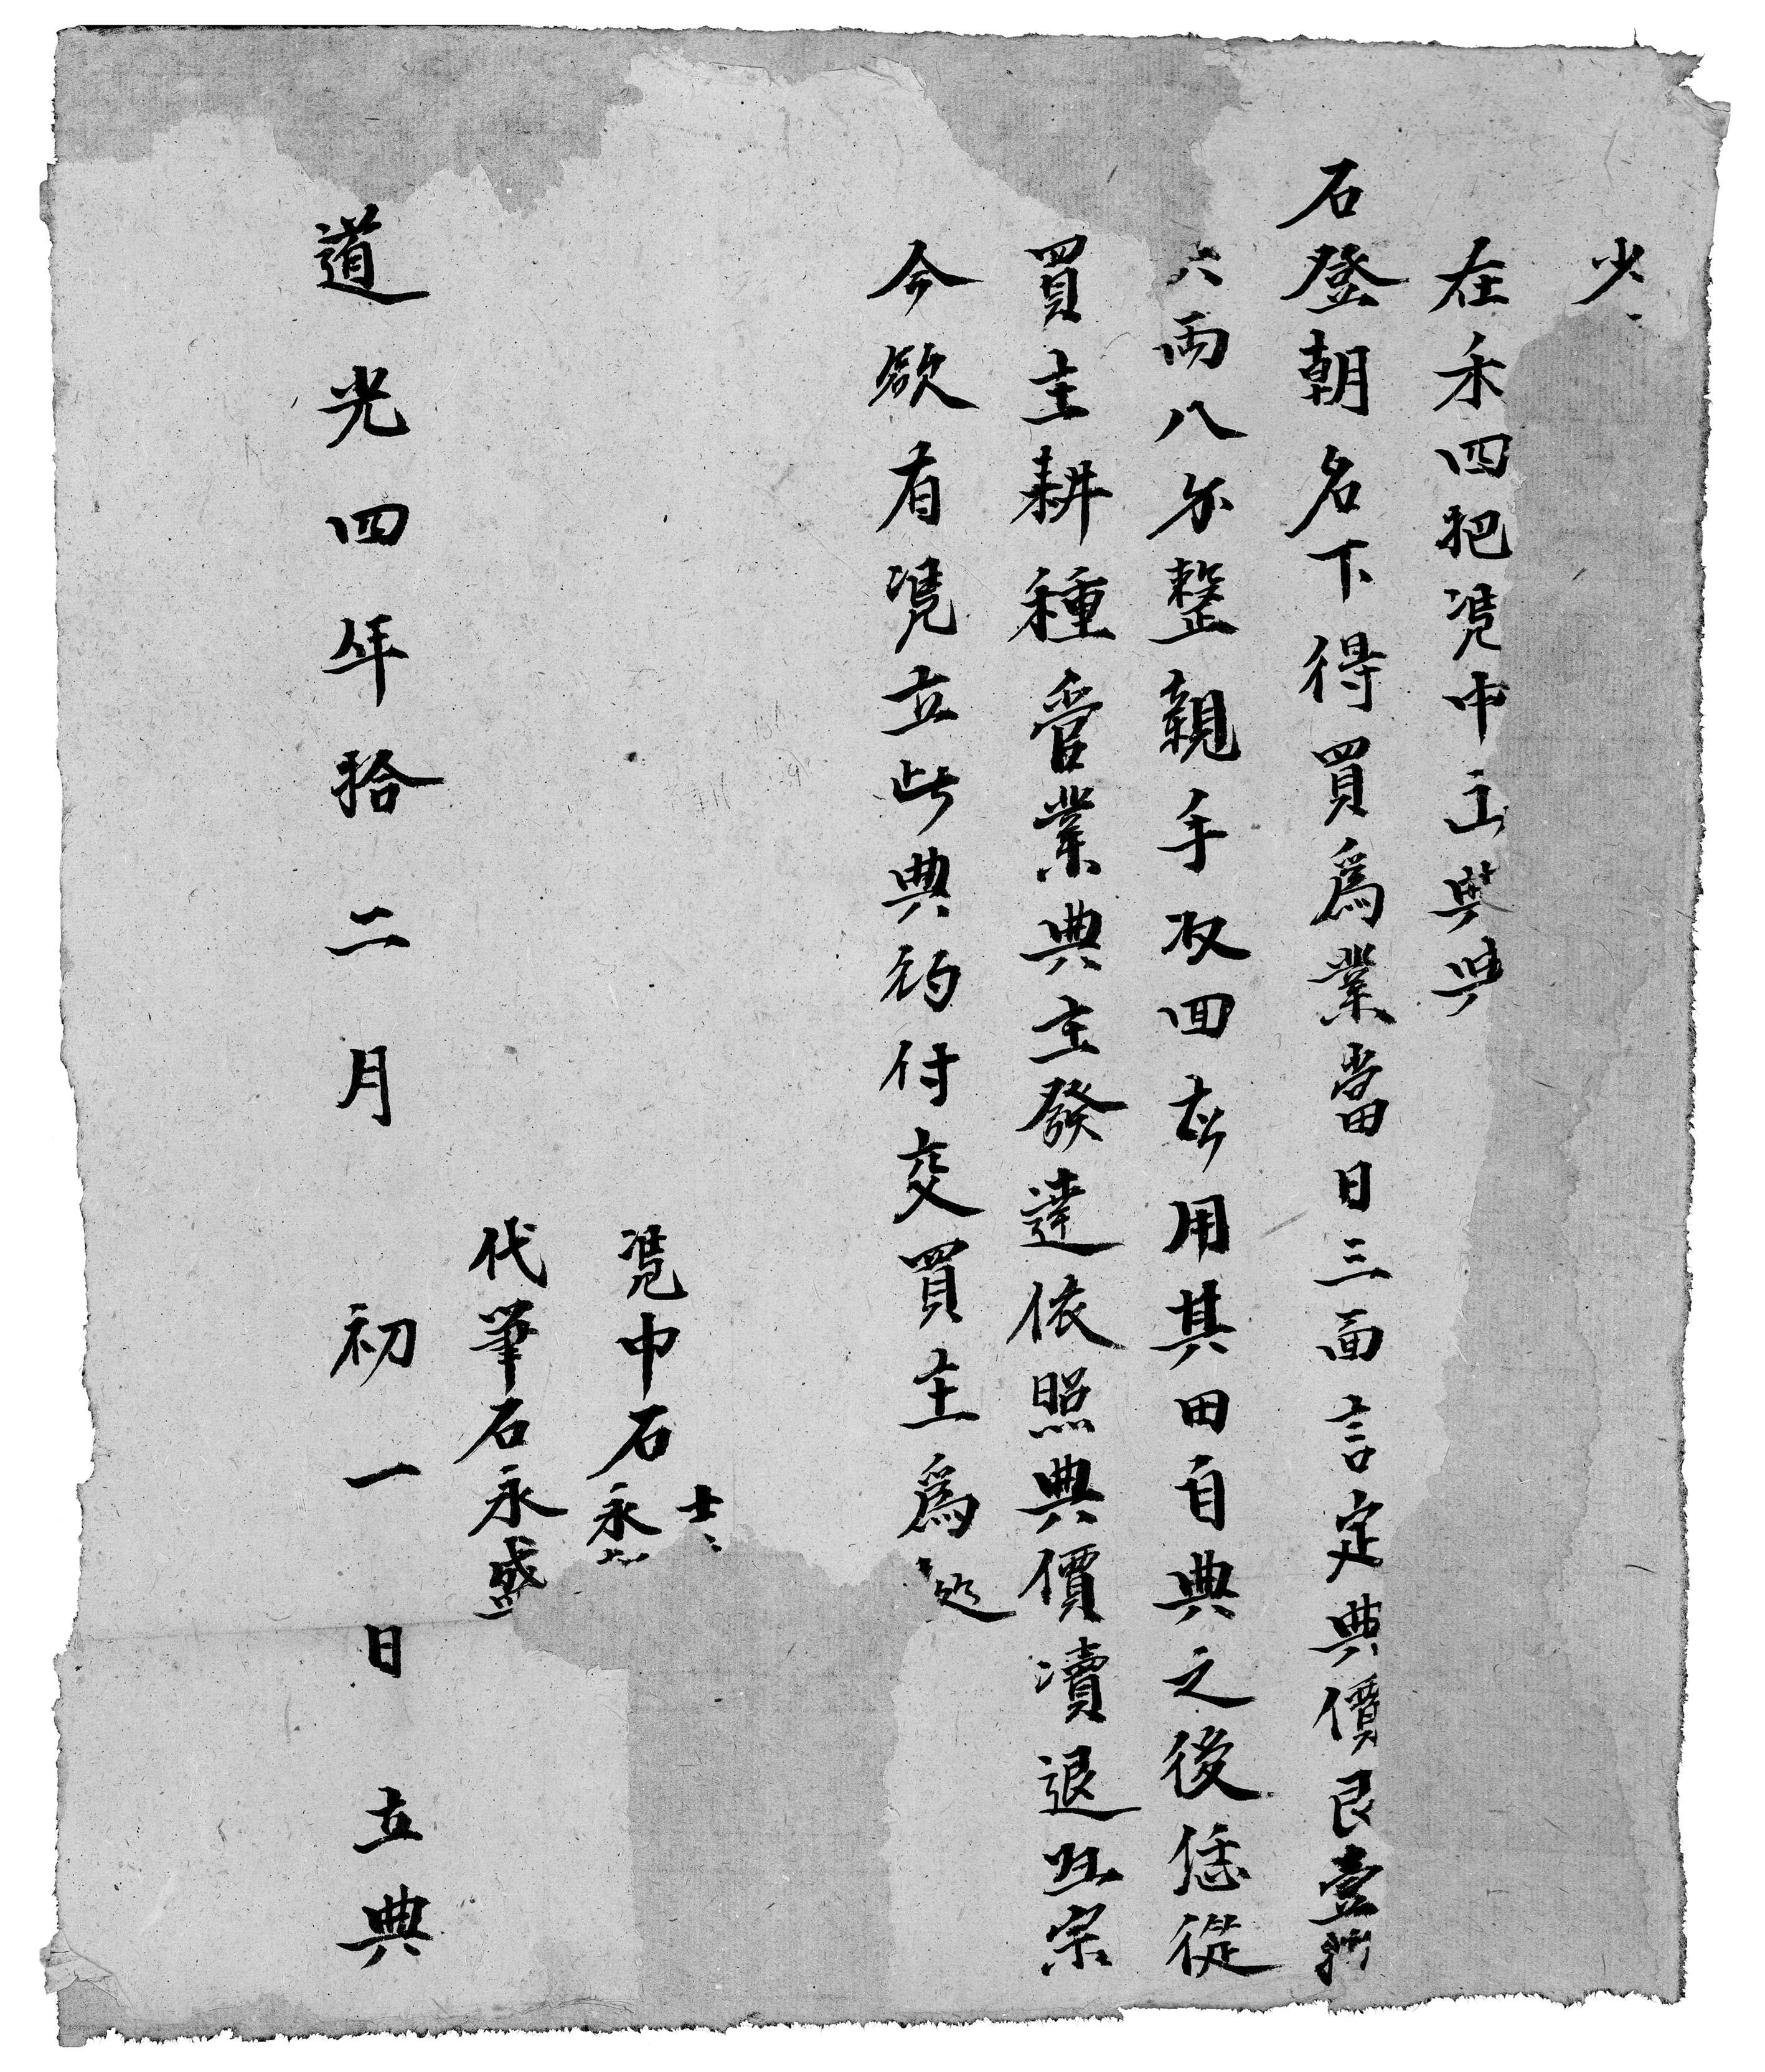 少
在禾四把凴中立典與
石登朝名下得買爲業當日三面言定典價艮壹拾
六両八分整親手収囬应用其田自典之後恁從
買主耕種管業典主發達依照典價瀆退歸宗
今欲有凴立此典約付交買主爲処
凴中石永
代筆石永盛
道光四年拾二月初一日立典